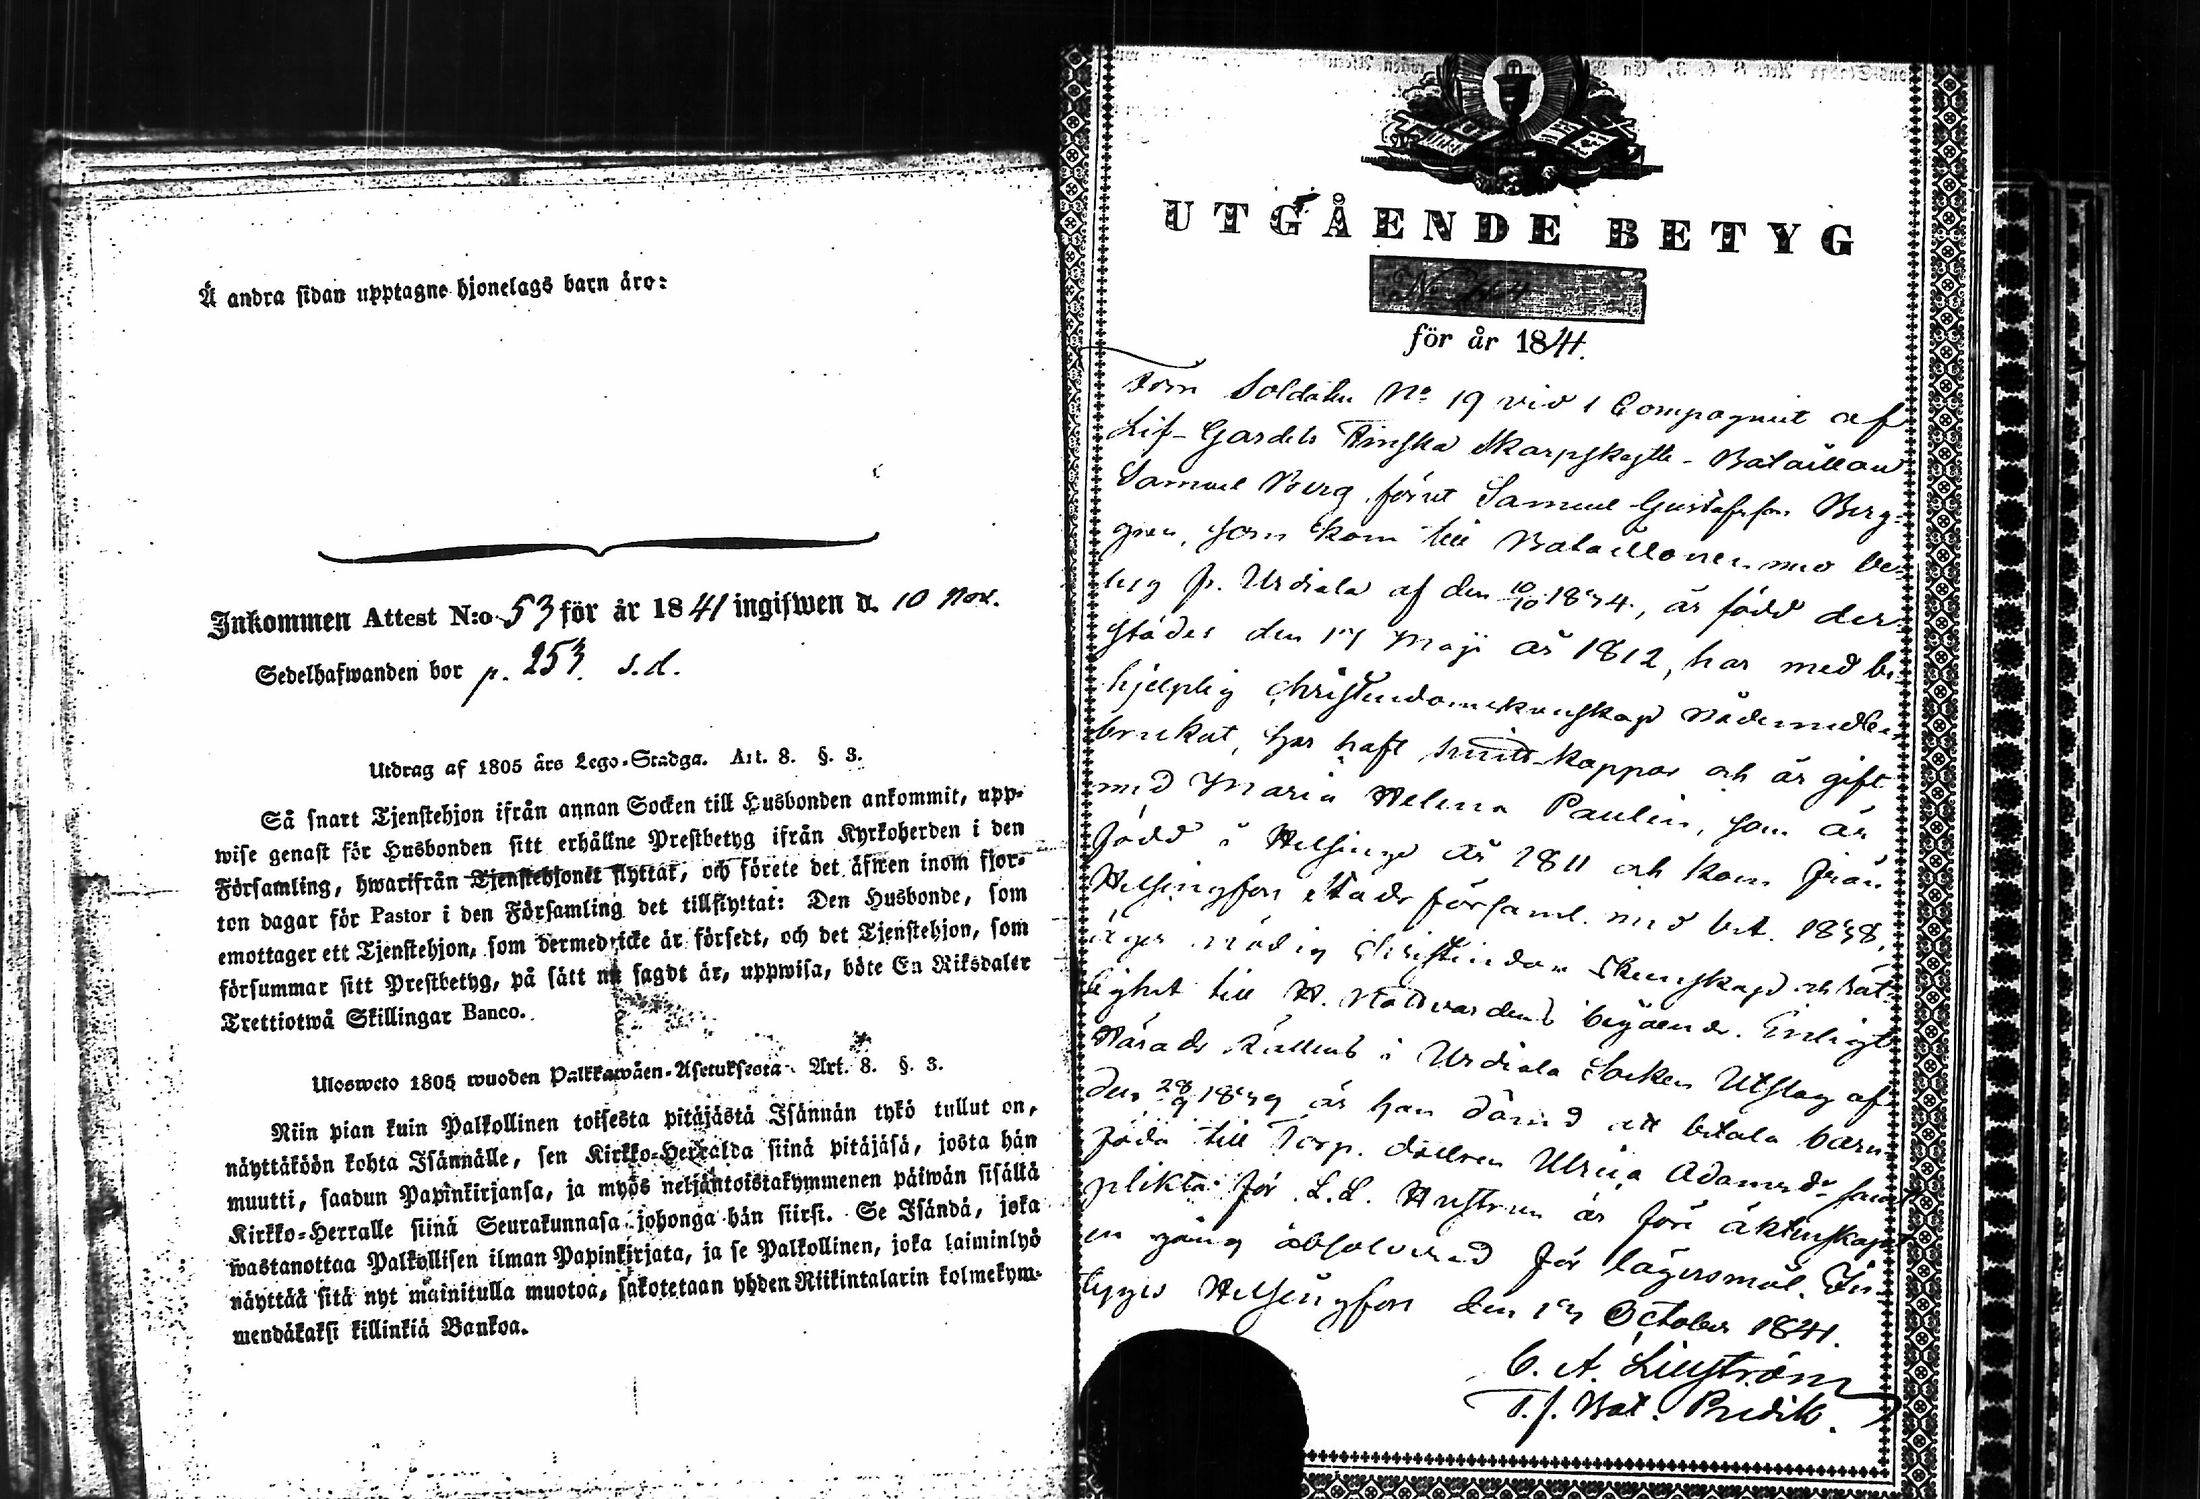 Å andra sidan upptagne hjonelags barn äro:
Inkommen Attest N:o 53 för år 1841 ingifwen d. 10 Nov.
Sedelhafwanden bor p. 253. s.d.
Utdrag af 1805 års Lego-Stadga. Art. 8. §. 3.
Så snart Tjenstehjon ifrån annan Socken till Husbonden ankommit, upp-
wise genast för Husbonden sitt erhållne Prestbetyg ifrån Kyrkoherden i den
Församling, hwarifrån Tjenstehjonet flyttat, och förete det äfwen inom fjor-
ton dagar för Pastor i den Församling det tillflyttat: Den Husbonde, som
emottager ett Tjenstehjon, som dermed icke är försedt, och det Tjenstehjon, som
försummar sitt Prestbetyg, på sätt nu sagdt är, uppwisa, böte En Riksdaler
Trettiotwå Skillingar Banco.
Ulosweto 1805 wuoden Palkkawäen-Asetuksesta Art. 8. §. 3.
Niin pian kuin Palkollinen toisesta pitäjästä Isännän tykö tullut on,
näyttäköön kohta Isännälle, sen Kirkko-Herralda siinä pitäjäsä, josta hän
muutti, saadun Papinkirjansa, ja myös neljäntoistakymmenen päiwän sisällä
Kirkko-Herralle siinä Seurakunnasa johonga hän siirsi. Se Isändä, joka
wastanottaa Palkollisen ilman Papinkirjata, ja se Palkollinen, joka laiminlyö
näyttää sitä nyt mainitulla muotoa, sakotetaan yhden Riikintalarin kolmekym-
mendäkaksi killinkiä Bankoa.
UTGÅENDE BETYG
No
för år 1841.
Förre Soldaten No 19 vid 1 Compagniet af
Lif-Gardets Finska Skarpskytte-Bataillon
Samuel Berg, förut Samuel Gustafsson Berg-
gren, som kom till Bataillonen med be-
tyg fr. Urdiala af den 10/10 1834, är född der-
städes den 17 Maji år 1812, har med be-
hjelplig christendomskunskap nådemedlen
brukat, har haft smittkoppor och är gift
med Maria Helena Paulin, som är
född i Helsinge år 1811 och kom från
Helsingfors Stads församl. med bet. 1838,
äger nödig christendomskunskap och rät-
tighet till H. Nattvardens begående. Enligt
Härads Rättens i Urdiala Socken Utslag af
den 28/9 1839 är han dömd att betala barn-
föda till Torp. dottren Ulrica Adamsdr samt
plikta för L.L. Hustrun är före äktenskapet
en gång absolverad för lägersmål. In-
tygas Helsingfors den 13 October 1841.
C. A. Lillström
T. f. Bat. Predik.